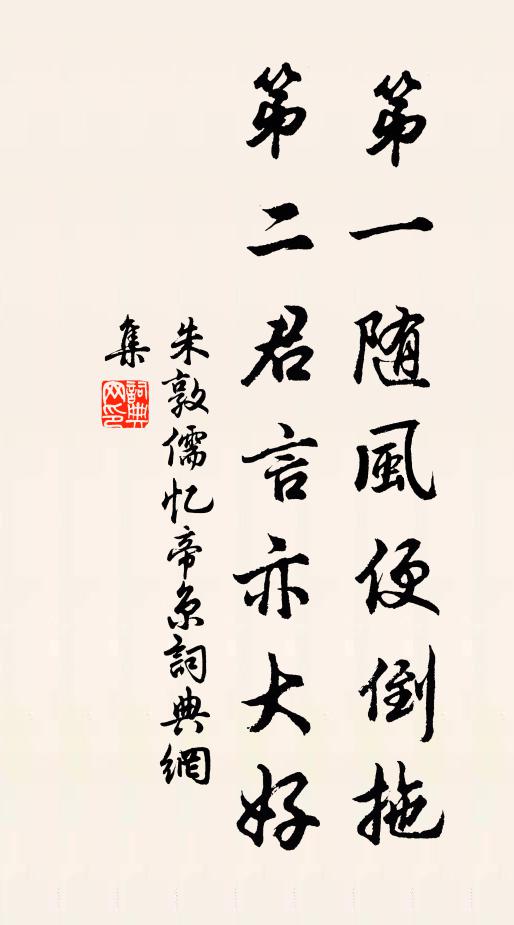 第一随風便倒拖
第二君言亦大好
朱敦儒忆帝京詞典網
集
詞典
网印